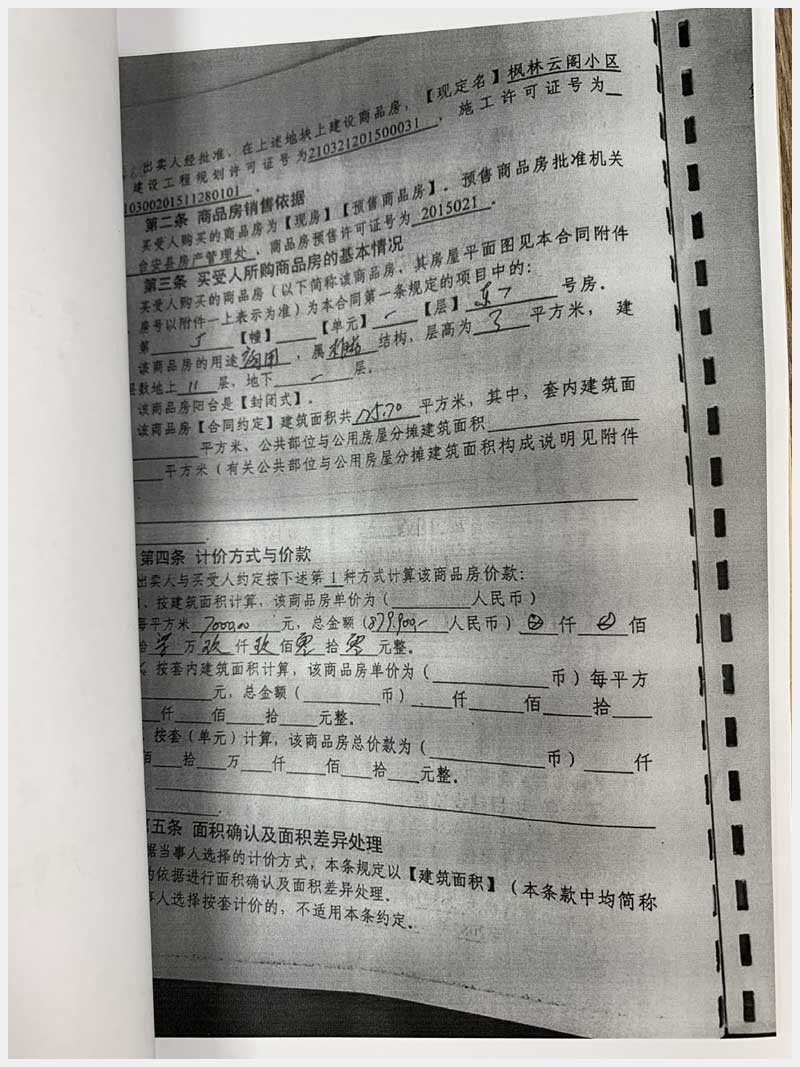 出卖人经批准，在上述地块上建设商品房，【现定名】枫林云阁小区
建设工程规划许可证号为210321201500031，施工许可证号为
10300201511280101。
第二条 商品房销售依据
买受人购买的商品房为【现房】【预售商品房】。预售商品房批准机关
台安县房产管理处，商品房预售许可证号为 2015021 。
第三条 买受人所购商品房的基本情况
买受人购买的商品房（以下简称该商品房，其房屋平面图见本合同附件
房号以附件一上表示为准）为本合同第一条规定的项目中的：
第 5 【幢】 【单元】 一 【层】 东 号房。
该商品房的用途 商用 ，属 框 结构，层高为 3 平方米，建
层数地上 11 层，地下 一 层。
该商品房阳台是【封闭式】。
该商品房【合同约定】建筑面积共 125.70 平方米，其中，套内建筑面
平方米，公共部位与公用房屋分摊建筑面积
平方米（有关公共部位与公用房屋分摊建筑面积构成说明见附件
第四条 计价方式与价款
出卖人与买受人约定按下述第 1 种方式计算该商品房价款：
1、按建筑面积计算，该商品房单价为（ 人民币）
每平方米 7000.00 元，总金额（879,900 人民币） 仟 佰
拾 万 玖 仟 玖 佰 零 拾 零 元整。
按套内建筑面积计算，该商品房单价为（ 币）每平方
元，总金额（ 币） 仟 佰 拾
仟 佰 拾 元整。
按套（单元）计算，该商品房总价款为（ 币） 仟
佰 拾 万 仟 佰 拾 元整。
第五条 面积确认及面积差异处理
据当事人选择的计价方式，本条规定以【建筑面积】（本条款中均简称
的依据进行面积确认及面积差异处理。
事人选择按套计价的，不适用本条约定。